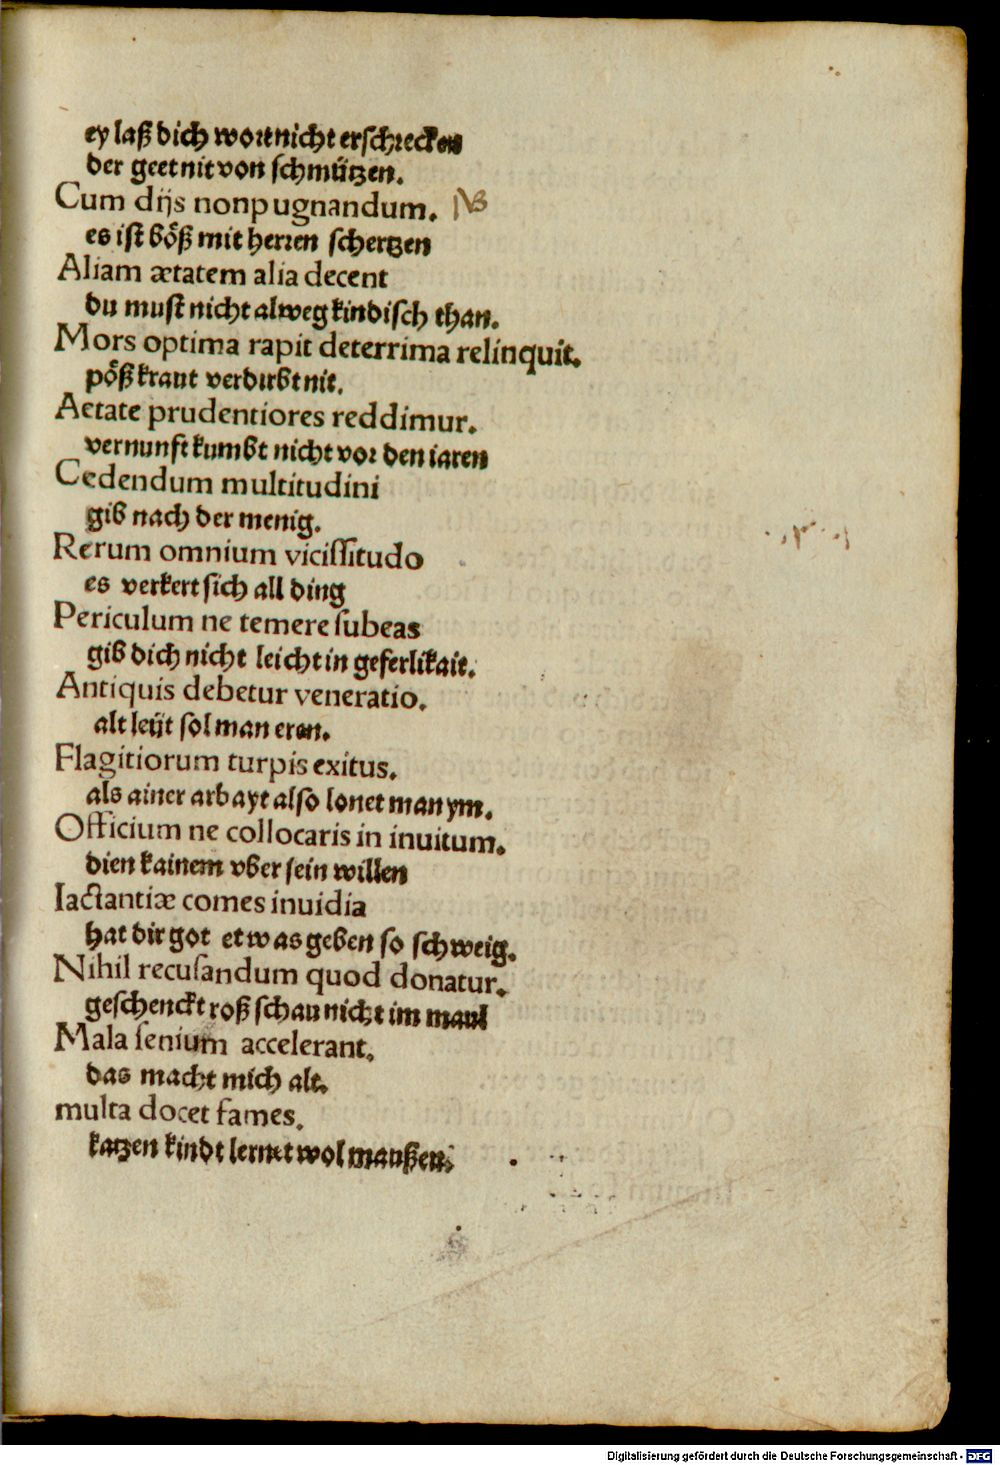 ey laß dich wort nicht erschrecken
der geet nit von schmützen.
Cum dijs non pugnandum. NB
es ist böß mit herren schertzen
Aliam ætatem alia decent
du must nicht alweg kindisch than.
Mors optima rapit deterrima relinquit.
pöß kraut verdirbt nit.
Aetate prudentiores reddimur.
vernunft kumbt nicht vor den iaren
Cedendum multitudini
gib nach der menig.
Rerum omnium vicissitudo
es verkert sich all ding
Periculum ne temere subeas
gib dich nicht leicht in geferlikait.
Antiquis debetur veneratio.
alt leüt sol man eren.
Flagitiorum turpis exitus.
als ainer arbayt also lonet man ym.
Officium ne collocaris in inuitum.
dien kainem vber sein willen
Iactantiæ comes inuidia
hat dir got etwas geben so schweig.
Nihil recusandum quod donatur.
geschenckt roß schau nicht im maul
Mala senium accelerant.
das macht mich alt.
multa docet fames.
katzen kindt lernet wol maußen.
Digitalisierung gefördert durch die Deutsche Forschungsgemeinschaft - DFG